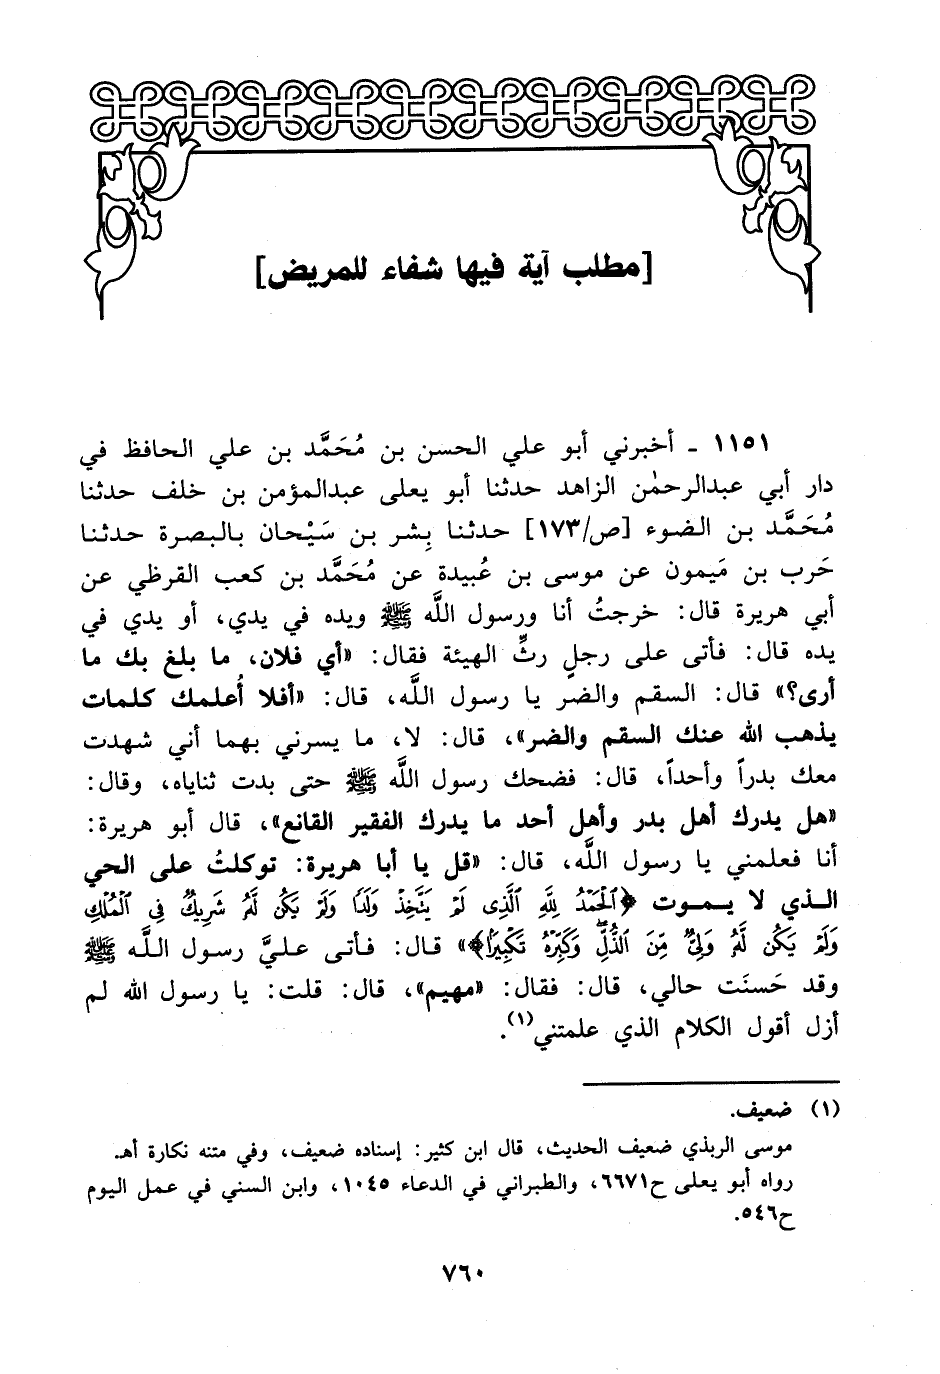 [مطلب آية فيها شفاء للمريض]
١١٥١ ـ أخبرني أبو علي الحسن بن مُحَمَّد بن علي الحافظ في
دار أبي عبدالرحمٰن الزاهد حدثنا أبو يعلى عبدالمؤمن بن خلف حدثنا
مُحَمَّد بن الضوء [ص/١٧٣] حدثنا بِشر بن سَيْحان بالبصرة حدثنا
حَرب بن مَيمون عن موسى بن عُبيدة عن مُحَمَّد بن كعب القرظي عن
أبي هريرة قال: خرجتُ أنا ورسول اللَّه ﷺ ويده في يدي، أو يدي في
يده قال: فأتى على رجلٍ رثِّ الهيئة فقال: «أي فلان، ما بلغ بك ما
أرى؟» قال: السقم والضر يا رسول اللَّه، قال: «أفلا أُعلمك كلمات
يذهب الله عنك السقم والضر»، قال: لا، ما يسرني بهما أني شهدت
معك بدراً وأحداً، قال: فضحك رسول اللَّه ﷺ حتى بدت ثناياه، وقال:
«هل يدرك أهل بدر وأهل أحد ما يدرك الفقير القانع»، قال أبو هريرة:
أنا فعلمني يا رسول اللَّه، قال: «قل يا أبا هريرة: توكلتُ على الحي
الذي لا يموت ﴿ٱلْحَمْدُ لِلَّهِ ٱلَّذِى لَمْ يَتَّخِذْ وَلَدًا وَلَمْ يَكُن لَّهُۥ شَرِيكٌ فِى ٱلْمُلْكِ
وَلَمْ يَكُن لَّهُۥ وَلِىٌّ مِّنَ ٱلذُّلِّ ۖ وَكَبِّرْهُ تَكْبِيرًۢا﴾» قال: فأتى عليَّ رسول اللَّه ﷺ
وقد حَسنَت حالي، قال: فقال: «مهيم»، قال: قلت: يا رسول الله لم
أزل أقول الكلام الذي علمتني(١).
(١) ضعيف.
موسى الربذي ضعيف الحديث، قال ابن كثير: إسناده ضعيف، وفي متنه نكارة أهـ.
رواه أبو يعلى ح٦٦٧١، والطبراني في الدعاء ١٠٤٥، وابن السني في عمل اليوم
ح٥٤٦.
٧٦٠